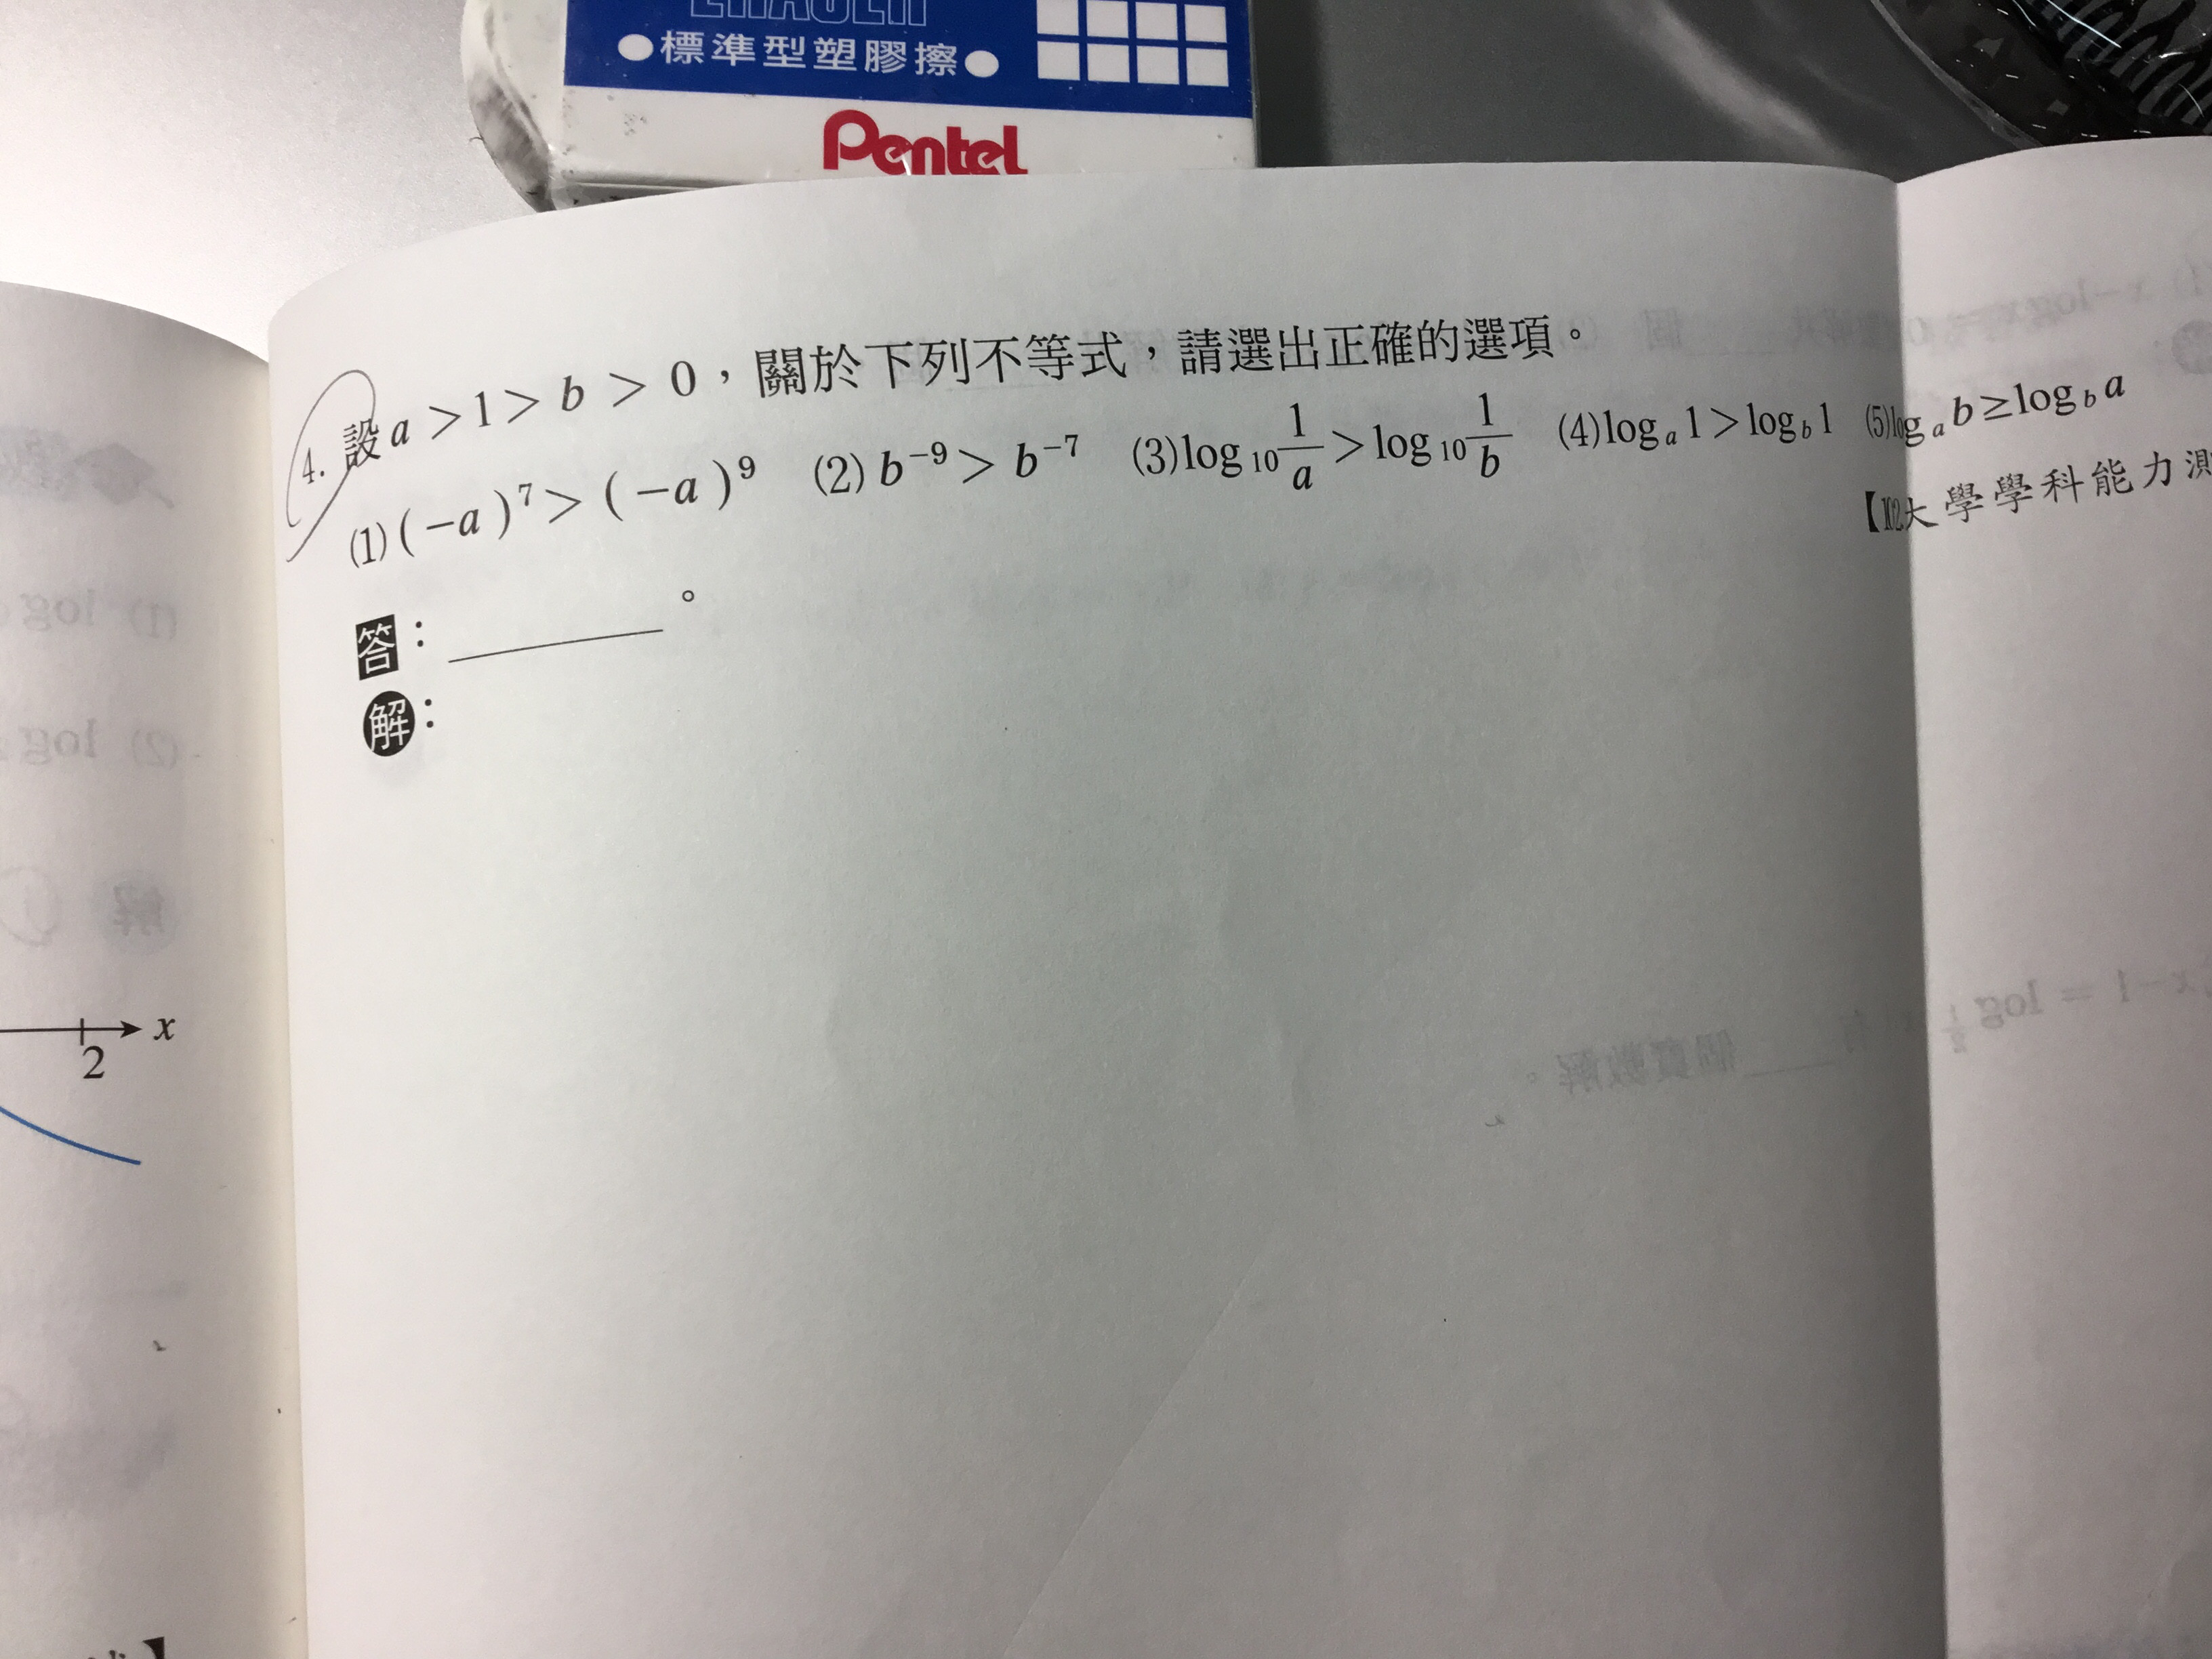 ERASER
●標準型塑膠擦●
Pentel
4. 設 a > 1 > b > 0，關於下列不等式，請選出正確的選項。
(1) (−a)⁷ > (−a)⁹ (2) b⁻⁹ > b⁻⁷ (3) log₁₀ 1/a > log₁₀ 1/b (4) logₐ 1 > log_b 1 (5) logₐ b ≥ log_b a
【102大學學科能力測
答：________。
解：
x
2